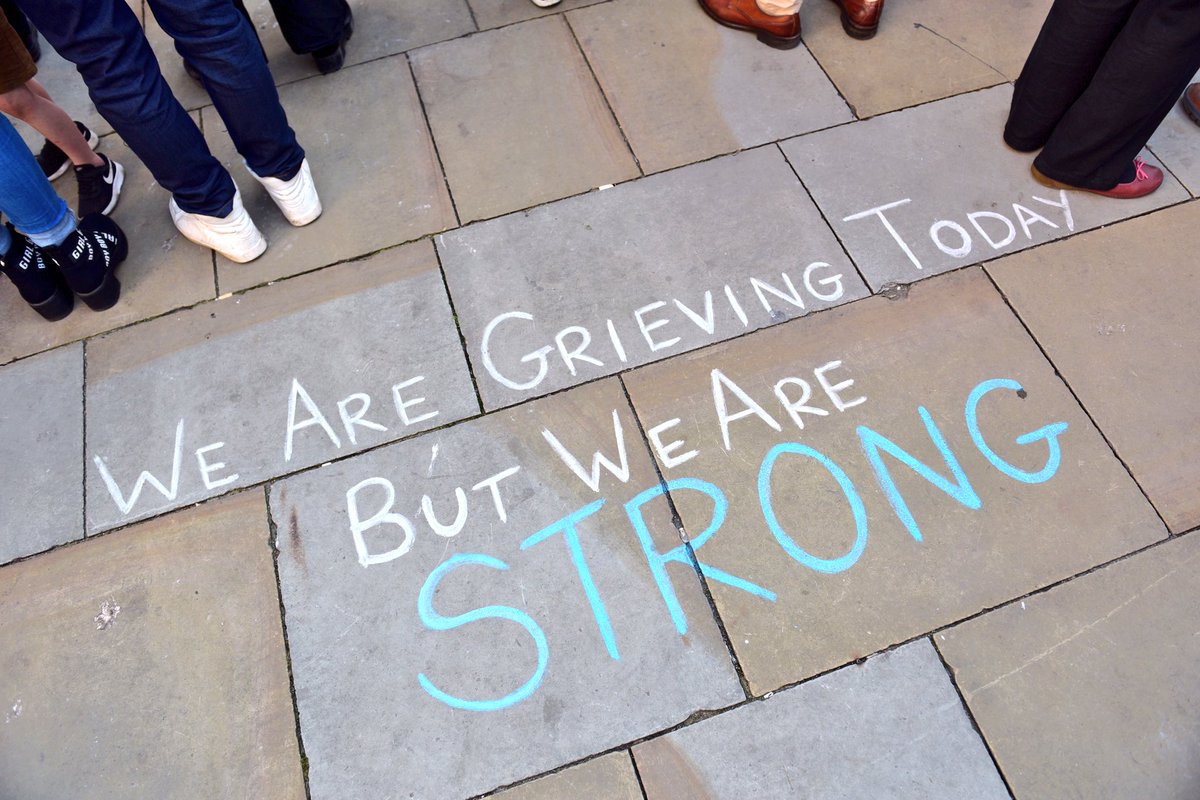 We Are Grieving Today
But We Are
STRONG